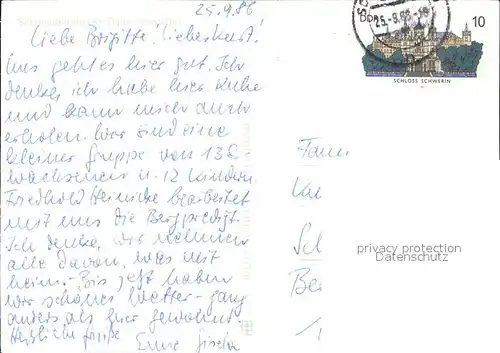 25.9.86
Liebe Brigitte! Lieber Kurt!
Uns geht es hier gut. Ich
denke, ich habe hier Ruhe
und kann mich auch
erholen. Wir sind eine
kleiner Gruppe von 13 E-
wachsenen u. 12 Kindern.
Friedhold Heinicke bearbeitet
mit uns die Bergpredigt.
Ich denke, wir nehmen
alle davon was mit
heim. - Bis jetzt haben
wir schönes Wetter - ganz
anders als hier gewohnt.
Herzliche Grüße
Eure
25.-9.86
DDR
10
SCHLOSS SCHWERIN
Fam
Be
privacy protection
Datenschutz